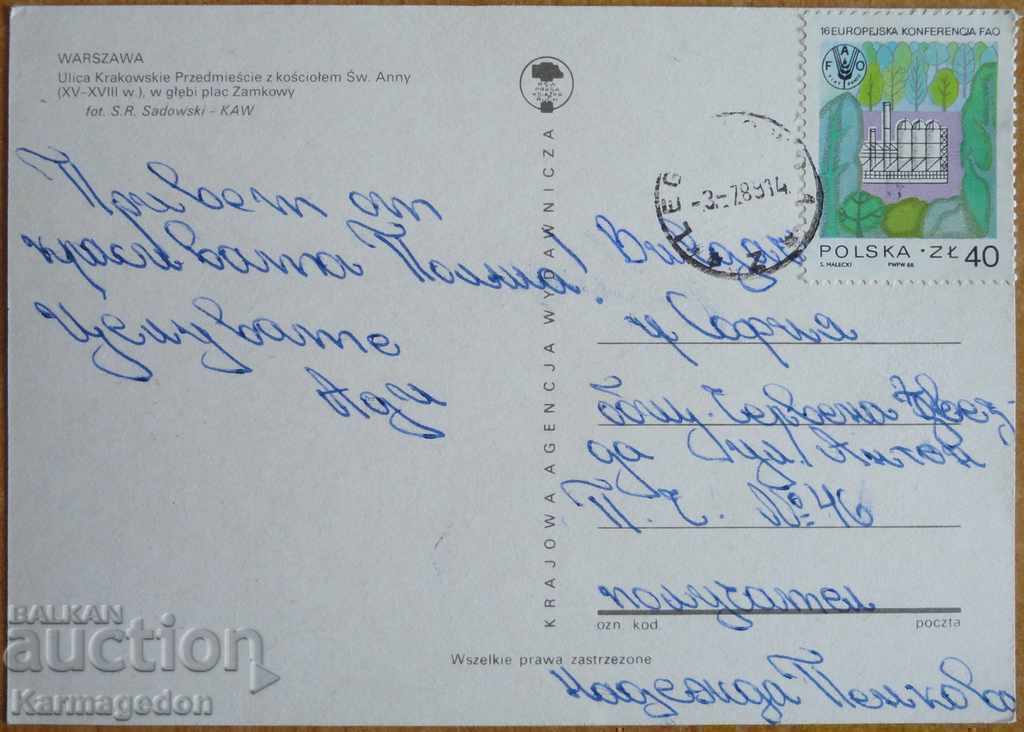 WARSZAWA
Ulica Krakowskie Przedmieście z kościołem Św. Anny
(XV–XVIII w.), w głębi plac Zamkowy
fot. S.R. Sadowski - KAW
Привет от
красивата Полша!
Целувате
Ади
KRAJOWA AGENCJA WYDAWNICZA
16 EUROPEJSKA KONFERENCJA FAO
FAO
FIAT PANIS
POLSKA · ZŁ 40
S. MAŁECKI PWPW 88
-3.-7.89 14
гр София
бул. Червена Звез-
да ул. Антон
П. Г. №: 46
получател
ozn. kod poczta
Надежда Пенкова
Wszelkie prawa zastrzeżone
BALKAN
auction
Karmagedon